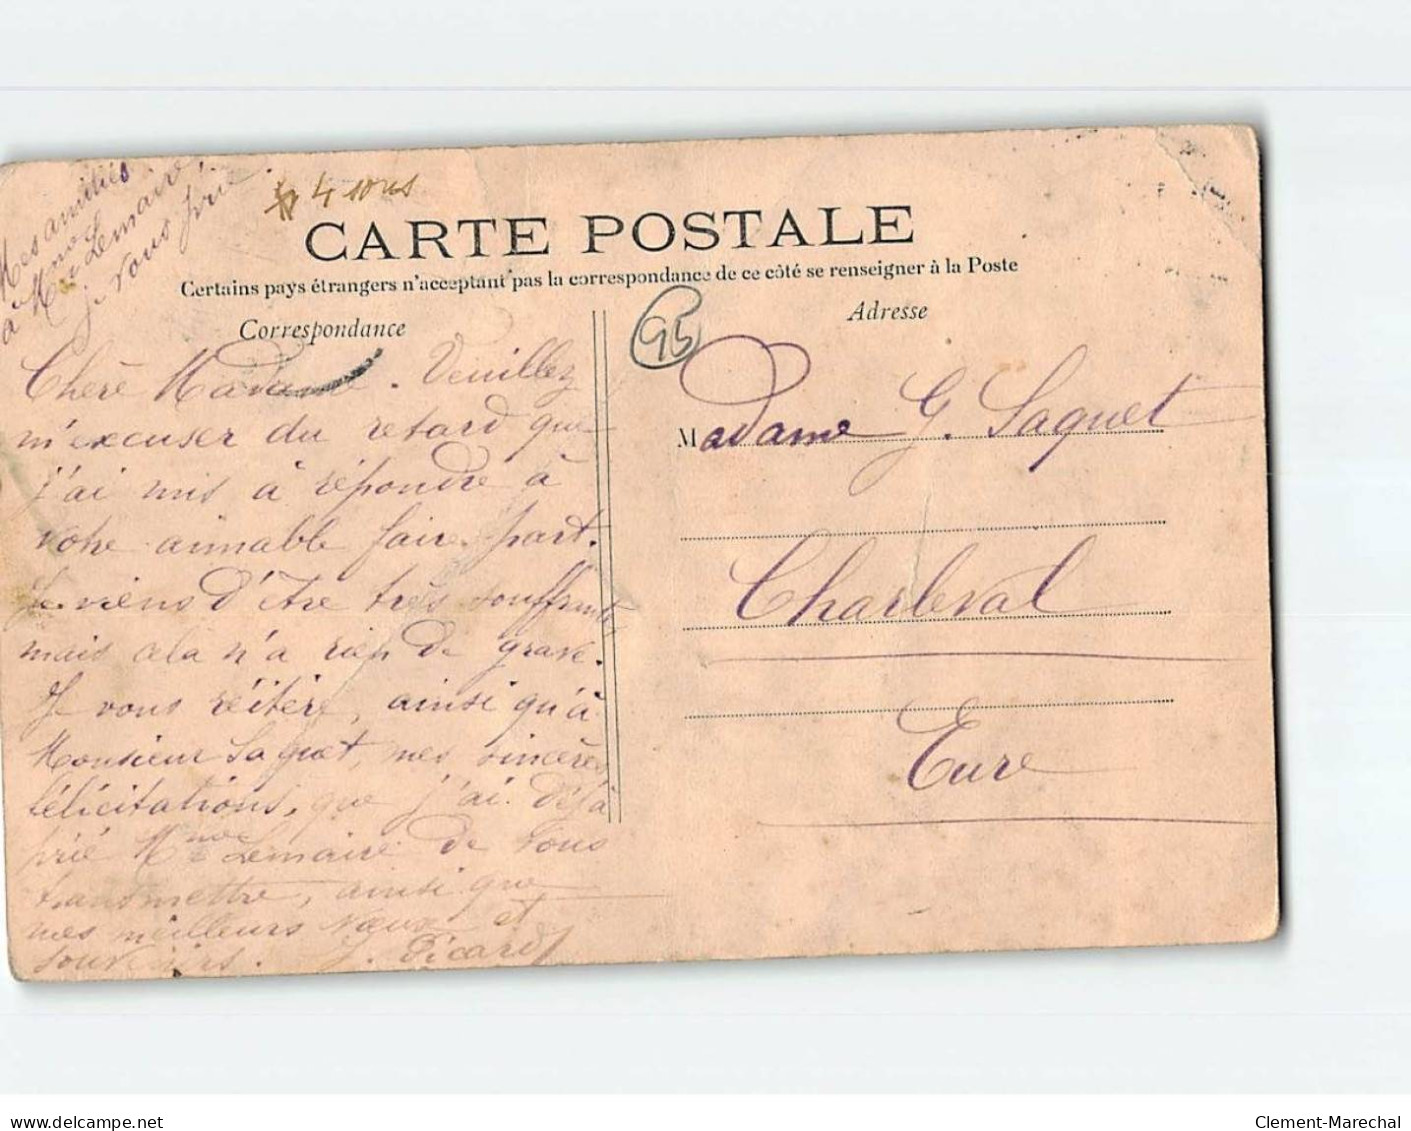 Mes amitiés
à Mme Lemaire,
je vous prie.
4 sous
CARTE POSTALE
Certains pays étrangers n'acceptant pas la correspondance de ce côté se renseigner à la Poste
Correspondance
Adresse
95
Chère Madame. Veuillez
m'excuser du retard que
j'ai mis à répondre à
votre aimable faire-part.
Je viens d'être très souffrante,
mais cela n'a rien de grave.
Je vous réitère, ainsi qu'à
Monsieur Saquet, mes sincères
félicitations, que j'ai déjà
prié Mme Lemaire de vous
transmettre, ainsi que
mes meilleurs vœux et
souvenirs. J. Picard
Madame G. Saquet
Charleval
Eure
www.delcampe.net
Clement-Marechal